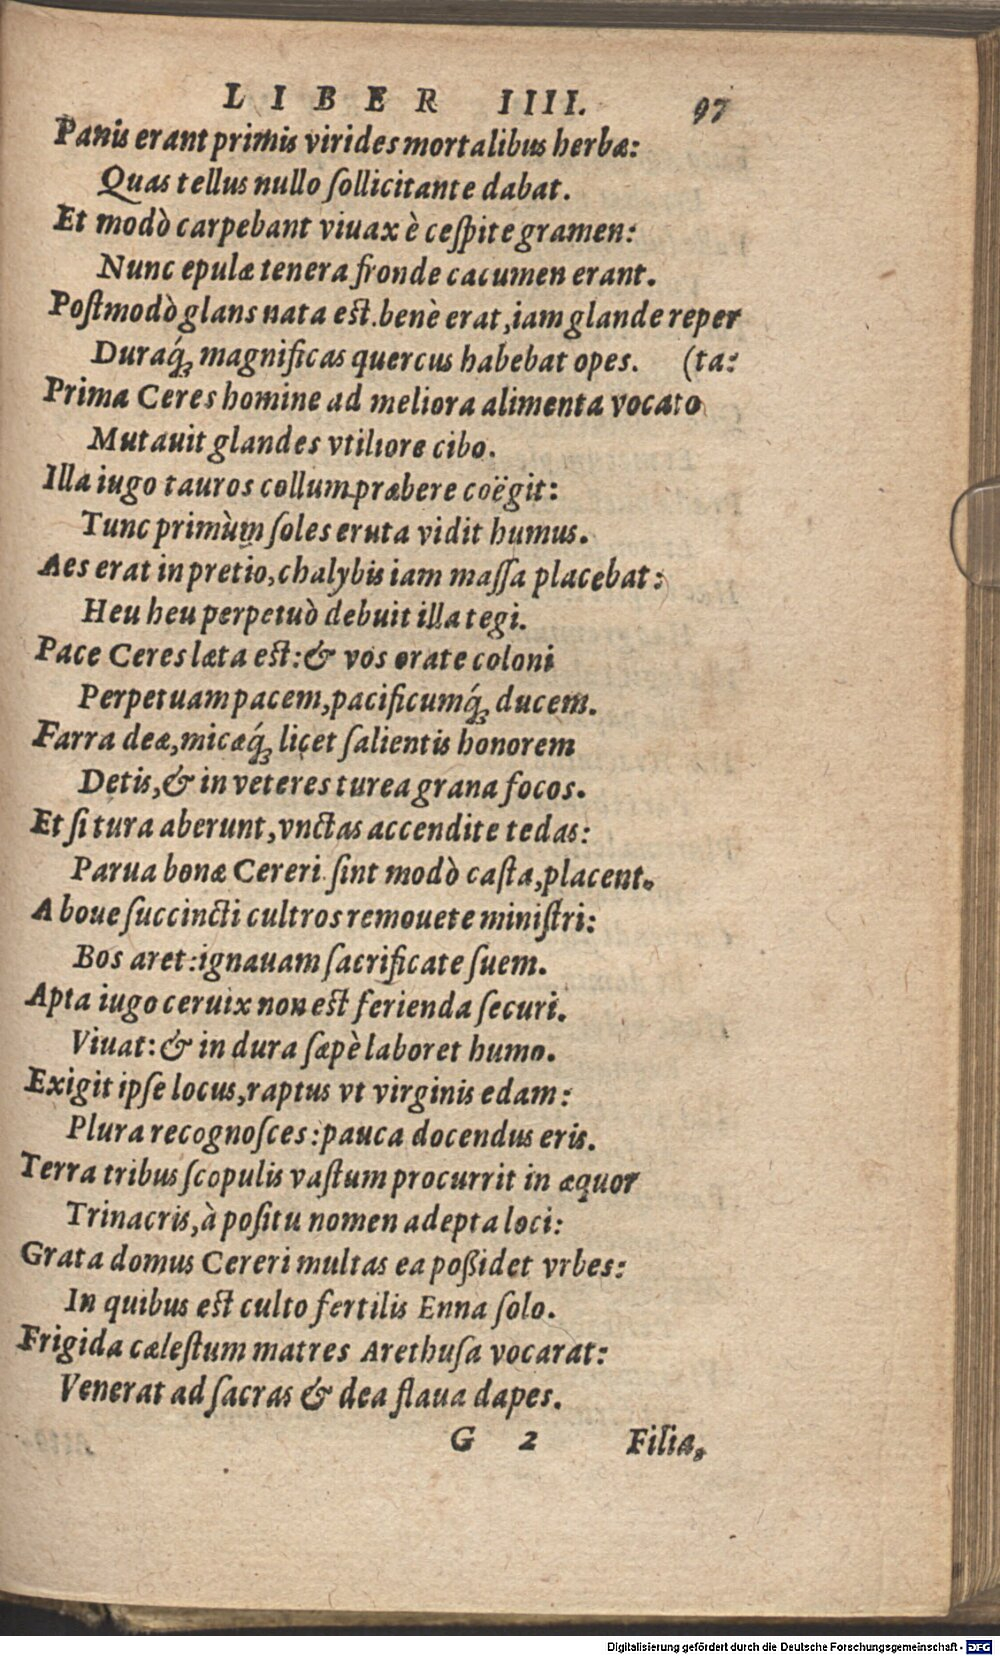 LIBER IIII. 97
Panis erant primis virides mortalibus herbæ:
Quas tellus nullo ſollicitante dabat.
Et modò carpebant viuax è ceſpite gramen:
Nunc epulæ tenera fronde cacumen erant.
Poſtmodò glans nata eſt. benè erat, iam glande reper
Duraq́ꝫ magnificas quercus habebat opes. (ta:
Prima Ceres homine ad meliora alimenta vocato
Mutauit glandes vtiliore cibo.
Illa iugo tauros collum præbere coëgit:
Tunc primùm ſoles eruta vidit humus.
Aes erat in pretio, chalybis iam maſſa placebat:
Heu heu perpetuò debuit illa tegi.
Pace Ceres læta eſt: & vos orate coloni
Perpetuam pacem, pacificumq́ꝫ ducem.
Farra deæ, micæq́ꝫ licet ſalientis honorem
Detis, & in veteres turea grana focos.
Et ſi tura aberunt, vnctas accendite tedas:
Parua bonæ Cereri ſint modò caſta, placent.
A boue ſuccincti cultros remouete miniſtri:
Bos aret: ignauam ſacrificate ſuem.
Apta iugo ceruix non eſt ferienda ſecuri.
Viuat: & in dura ſæpè laboret humo.
Exigit ipſe locus, raptus vt virginis edam:
Plura recognoſces: pauca docendus eris.
Terra tribus ſcopulis vaſtum procurrit in æquor
Trinacris, à poſitu nomen adepta loci:
Grata domus Cereri multas ea poßidet vrbes:
In quibus eſt culto fertilis Enna ſolo.
Frigida cæleſtum matres Arethuſa vocarat:
Venerat ad ſacras & dea flaua dapes.
G 2 Filia,
Digitalisierung gefördert durch die Deutsche Forschungsgemeinschaft - DFG